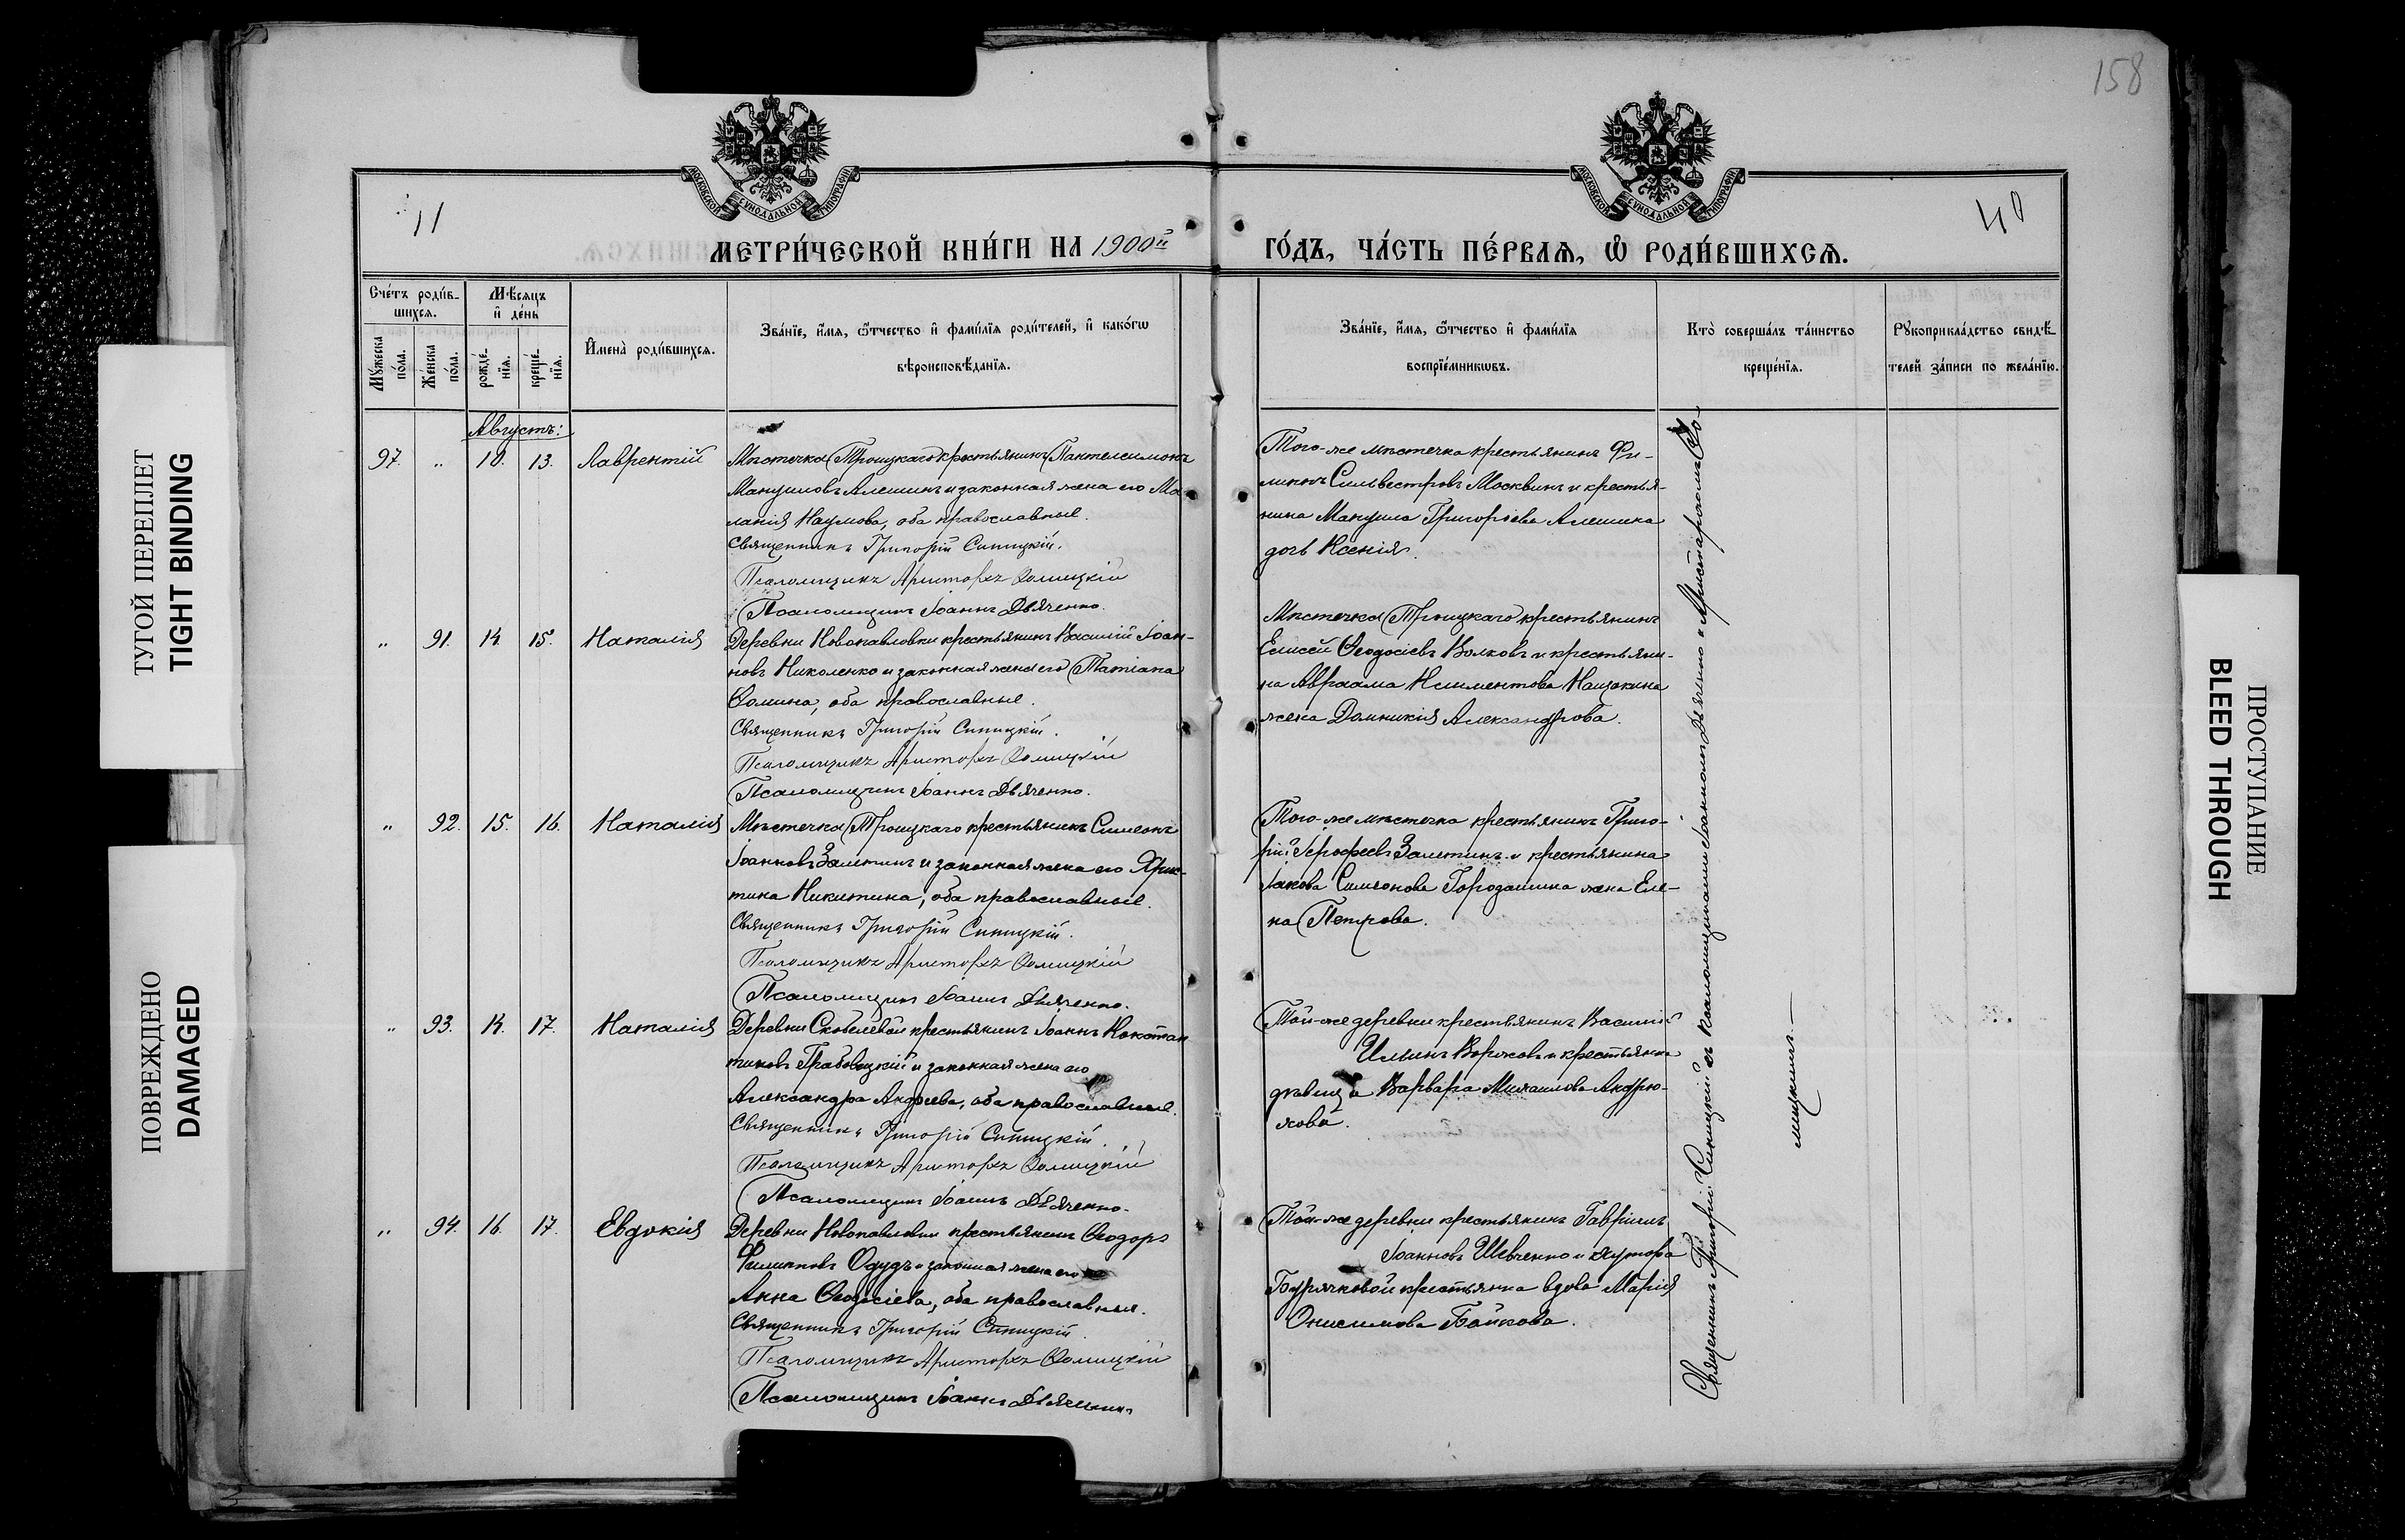 158
11
40
МОСКОВСКОЙ СѴНОДАЛЬНОЙ ТИПОГРАФІИ
МОСКОВСКОЙ СѴНОДАЛЬНОЙ ТИПОГРАФІИ
МЕТРИ́ЧЕСКОЙ КНИ́ГИ НА 1900й
ГО́ДЪ, ЧА́СТЬ ПЕ́РВАѦ, Ѡ҆ РОДИ́ВШИХСѦ.
Сче́тъ роди́в-
шихсѧ.
Мꙋ́жеска
по́ла.
Же́нска
по́ла.
Мѣ́сѧцъ
и҆ де́нь
рожде́-
нїѧ.
креще́-
нїѧ.
И҆мена̀ роди́вшихсѧ.
Зва́нїе, и҆́мѧ, ѻ҆́тчество и҆ фами́лїѧ роди́телей, и҆ како́гѡ
вѣроисповѣ́данїѧ.
Зва́нїе, и҆́мѧ, ѻ҆́тчество и҆ фами́лїѧ
воспрїе́мникѡвъ.
Кто̀ соверша́лъ та́инство
креще́нїѧ.
Рꙋкоприкла́дство свидѣ́-
телей за́писи по жела́нїю.
Августъ:
97. " 10. 13. Лаврентій
Мѣстечка Троицкаго крестьянинъ Пантелеимонъ
Мануиловъ Алешинъ и законная жена его Ма-
ланія Наумова, оба православные.
Священникъ Григорій Синицкій.
Псаломщикъ Аристархъ Ѳомицкій
Псаломщикъ Іоаннъ Дьяченко.
Того-же мѣстечка крестьянинъ Фи-
липпъ Сильвестровъ Москвинъ и крестья-
нина Мануила Григорьева Алешина
дочь Ксенія.
" 91. 14. 15. Наталія
Деревни Новопавловки крестьянинъ Василій Іоан-
новъ Николенко и законная жена его Татіана
Ѳомина, оба православные.
Священникъ Григорій Синицкій.
Псаломщикъ Аристархъ Ѳомицкій
Псаломщикъ Іоаннъ Дьяченко.
Мѣстечка Троицкаго крестьянинъ
Елисей Ѳеодосіевъ Волковъ и крестьяни-
на Авраама Климентова Нащокина
жена Домникія Александрова.
" 92. 15. 16. Наталія
Мѣстечка Троицкаго крестьянинъ Симеонъ
Іоанновъ Залетинъ и законная жена его Хрис-
тина Никитина, оба православные.
Священникъ Григорій Синицкій.
Псаломщикъ Аристархъ Ѳомицкій
Псаломщикъ Іоаннъ Дьяченко.
Того-же мѣстечка крестьянинъ Григо-
рій Іерофеевъ Залетинъ и крестьянина
Іакова Симеонова Городашина жена Еле-
на Петрова.
" 93. 14. 17. Наталія
Деревни Скобелевой крестьянинъ Іоаннъ Констан-
тиновъ Грабовецкій и законная жена его
Александра Андреева, оба православные.
Священникъ Григорій Синицкій.
Псаломщикъ Аристархъ Ѳомицкій
Псаломщикъ Іоаннъ Дьяченко.
Той-же деревни крестьянинъ Василій
Ильинъ Ворожовъ и крестьянка
дѣвица Варвара Михаилова Андрю-
хова.
" 94. 16. 17. Евдокія
Деревни Новопавловки крестьянинъ Ѳеодоръ
Филипповъ Одудъ и законная жена его
Анна Ѳеодосіева, оба православные.
Священникъ Григорій Синицкій.
Псаломщикъ Аристархъ Ѳомицкій
Псаломщикъ Іоаннъ Дьяченко.
Той-же деревни крестьянинъ Гавріилъ
Іоанновъ Шевченко и хутора
крестьянка вдова Марія
Онисимова Байкова.
Священникъ Григорій Синицкій съ псаломщиками Іоанномъ Дьяченко и Аристархомъ Ѳо-
мицкимъ.—
ТУГОЙ ПЕРЕПЛЕТ
TIGHT BINDING
ПОВРЕЖДЕНО
DAMAGED
ПРОСТУПАНИЕ
BLEED THROUGH